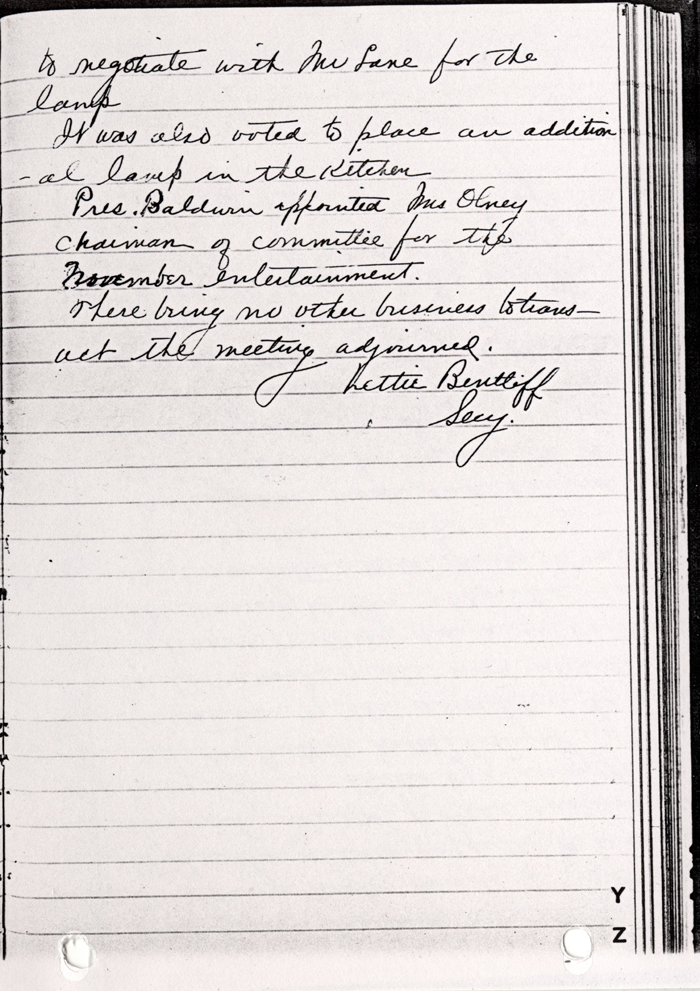 to negotiate with Mr Lane for the
lamp
It was also voted to place an addition
-al lamp in the Kitchen
Pres. Baldwin appointed Mrs Olney
Chairman of committee for the
November entertainment.
There being no other business to trans-
act the meeting adjourned.
Lettie Bentliff
Secy.
Y
Z